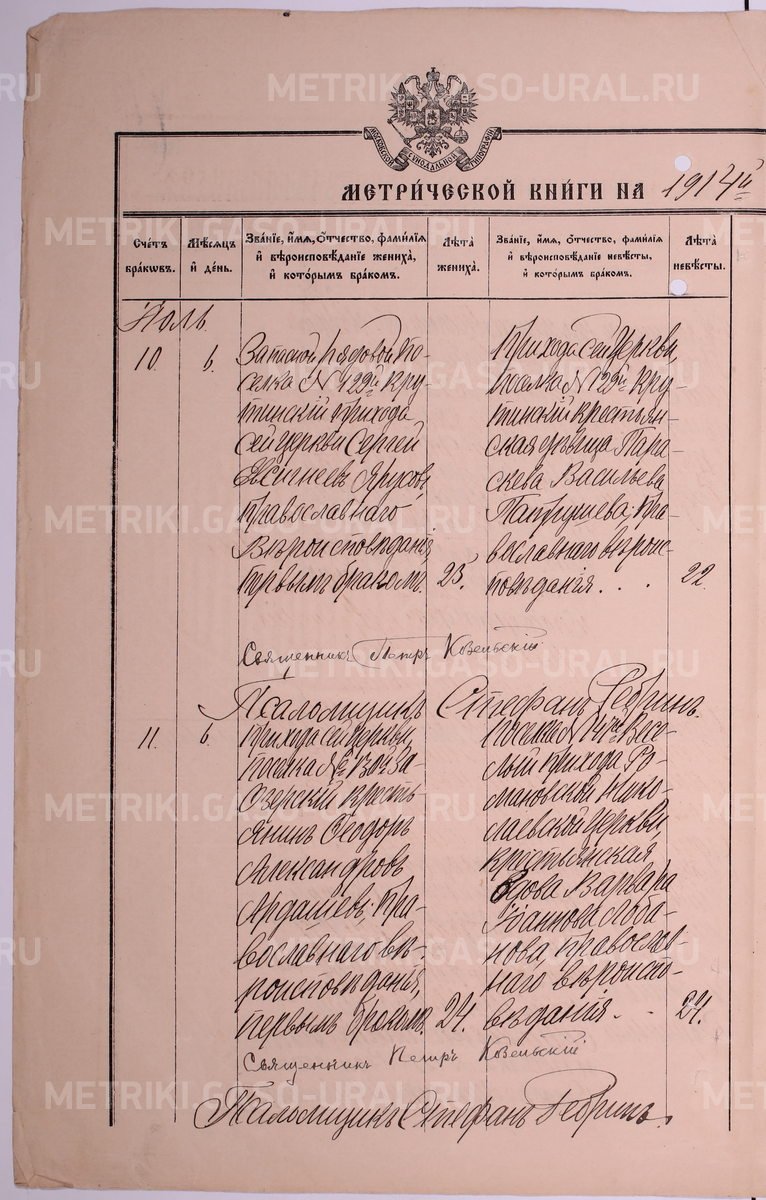 МОСКОВСКОЙ СѴНОДАЛЬНОЙ ТИПОГРАФІИ
МЕТРИ́ЧЕСКОЙ КНИ́ГИ НА 1914й
Сче́тъ бра́кωвъ.
Мѣ́сяцъ и҆ де́нь.
Зва́нїе, и҆́мѧ, ѻ҆́тчество, фами́лїѧ и҆ вѣроисповѣ́данїе жениха̀, и҆ кото́рымъ бра́комъ.
Лѣ́та жениха̀.
Зва́нїе, и҆́мѧ, ѻ҆́тчество, фами́лїѧ и҆ вѣроисповѣ́данїе невѣ́сты, и҆ кото́рымъ бра́комъ.
Лѣ́та невѣ́сты.
Іюль.
10. 6.
Запасной рядовой По-
селка № 129й Кру-
тинскій прихода
сей церкви Сергей
Ярусовъ,
Православнаго
Вѣроисповѣданія,
первымъ бракомъ. 25.
Прихода сей церкви,
Поселка № 129й Кру-
тинскій крестьян-
ская дѣвица Пара-
скева Васильева
Патрушева Пра-
вославнаго вѣроис-
повѣданія . . . 22.
Священникъ Петръ Козельскій
Псаломщикъ Стефанъ
11. 6.
Прихода сей церкви,
Поселка № За-
озерскій кресть-
янинъ Ѳеодоръ
Александровъ
Ардашевъ Пра-
вославнаго вѣ-
роисповѣданія,
первымъ бракомъ. 24.
Поселка № Весе-
лый прихода Ро-
мановской Нико-
лаевской церкви,
крестьянская
вдова Варвара
Іоаннова Лоба-
нова, православ-
наго вѣроиспо-
вѣданія . . 24.
Священникъ Петръ Козельскій
Псаломщикъ Стефанъ
METRIKI.GASO-URAL.RU